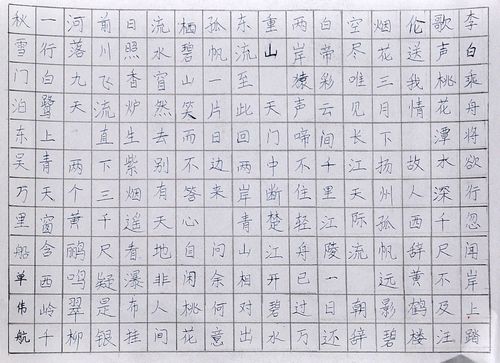 李白乘舟将欲行忽闻岸上踏
歌声桃花潭水深千尺不及汪
伦送我情故人西辞黄鹤楼
烟花三月下扬州孤帆远影碧
空尽唯见长江天际流朝辞
白带彩云间千里江陵一日还
两岸猿声啼不住轻舟已过万
重山天门中断楚江开碧水
东流至此回两岸青山相对出
孤帆一片日边来问余何意
栖碧山笑而不答心自闲桃花
流水窅然去别有天地非人间
日照香炉生紫烟遥看瀑布挂
前川飞流直下三千尺疑是银
河落九天两个黄鹂鸣翠柳
一行白鹭上青天窗含西岭千
秋雪门泊东吴万里船单伟航